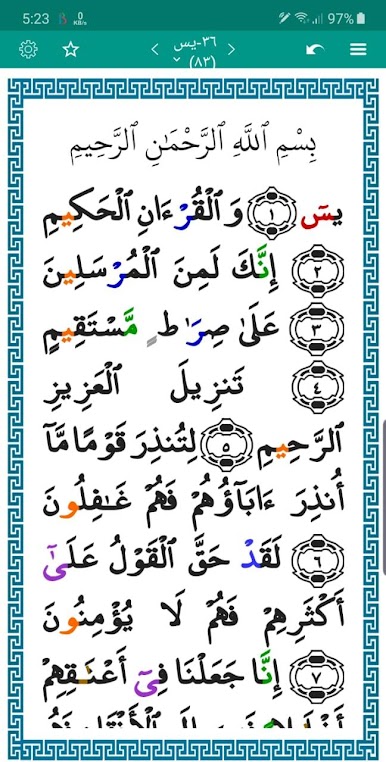 5:23 0 KB/s 97%
٣٦-يس
(٨٣)
بِسْمِ ٱللَّهِ ٱلرَّحْمَـٰنِ ٱلرَّحِيمِ
يسٓ ١ وَٱلْقُرْءَانِ ٱلْحَكِيمِ
٢ إِنَّكَ لَمِنَ ٱلْمُرْسَلِينَ
٣ عَلَىٰ صِرَٰطٍ مُّسْتَقِيمٍ
٤ تَنزِيلَ ٱلْعَزِيزِ
ٱلرَّحِيمِ ٥ لِتُنذِرَ قَوْمًا مَّآ
أُنذِرَ ءَابَآؤُهُمْ فَهُمْ غَـٰفِلُونَ
٦ لَقَدْ حَقَّ ٱلْقَوْلُ عَلَىٰٓ
أَكْثَرِهِمْ فَهُمْ لَا يُؤْمِنُونَ
٧ إِنَّا جَعَلْنَا فِىٓ أَعْنَـٰقِهِمْ